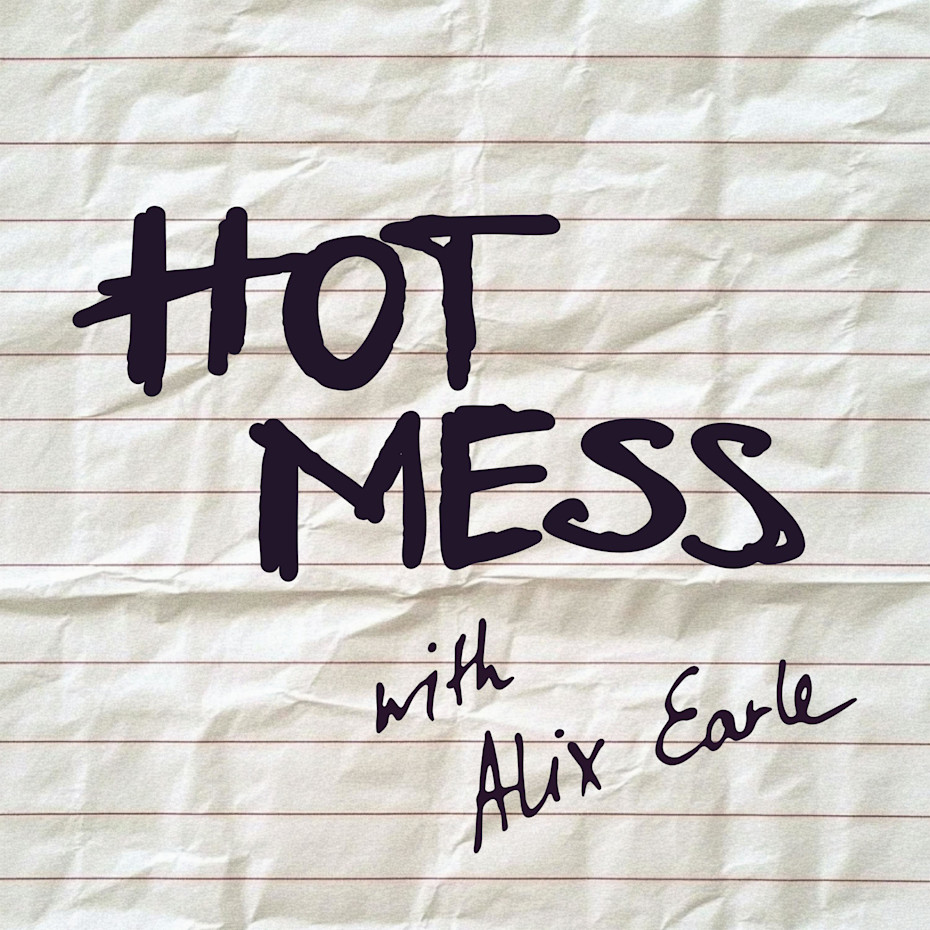 HOT
MESS
with
Alix Earle